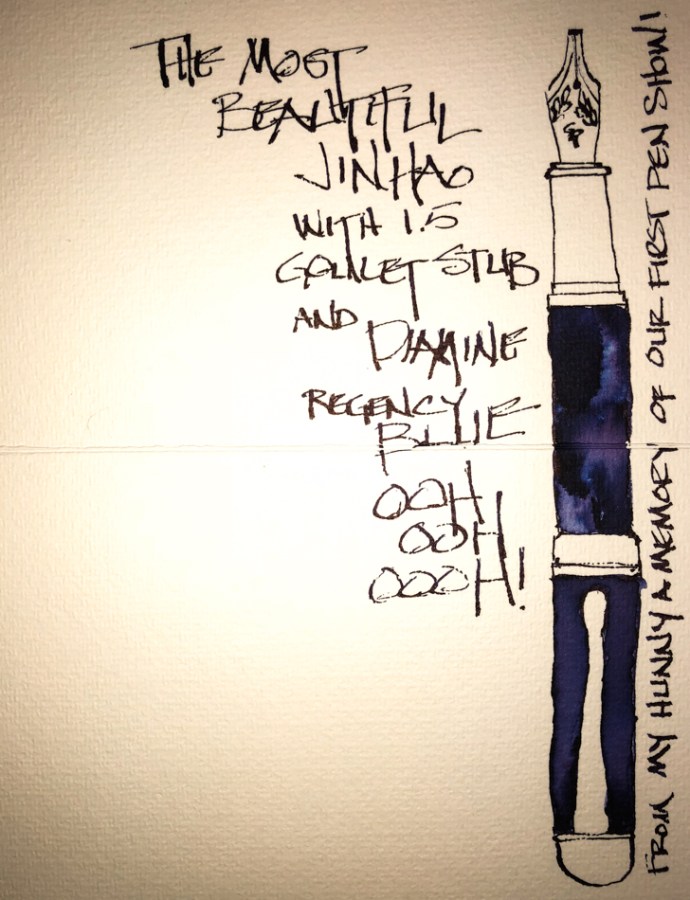 THE MOST
BEAUTIFUL
JINHAO
WITH 1.5
GOULET STUB
AND DIAMINE
REGENCY
BLUE
OOH
OOH
OOOH!
FROM MY HUNNY A MEMORY OF OUR FIRST PEN SHOW!